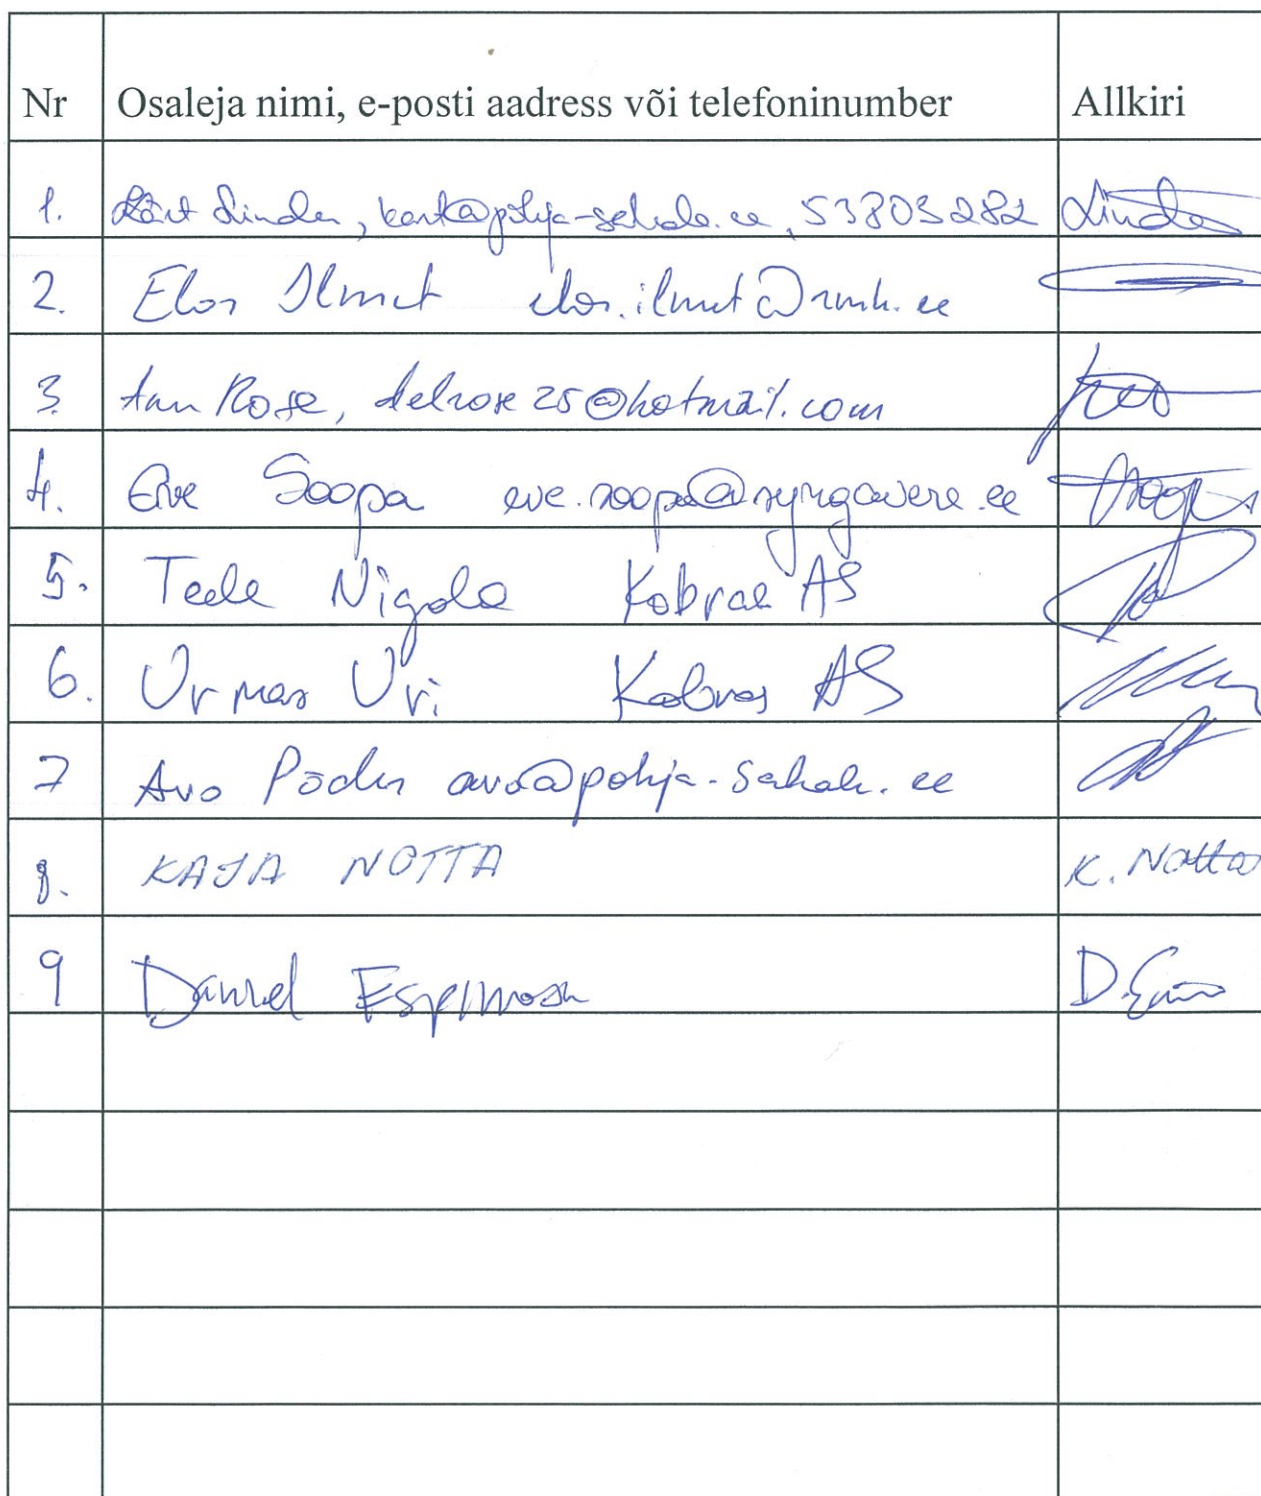 Nr Osaleja nimi, e-posti aadress või telefoninumber Allkiri
1. Kärt Linder, kart@pohja-sakala.ee, 53803282 Linder
2. Elor Ilmet elor.ilmet@rmk.ee
3. Ann Rose, delrose25@hotmail.com
4. Eve Soopa eve.soopa@syrgavere.ee Soopa
5. Teele Nigola Kobras AS
6. Urmas Uri Kobras AS
7 Avo Põder avo@pohja-sakala.ee
8. KAJA NOTTA K. Notta
9 Daniel Espinosa